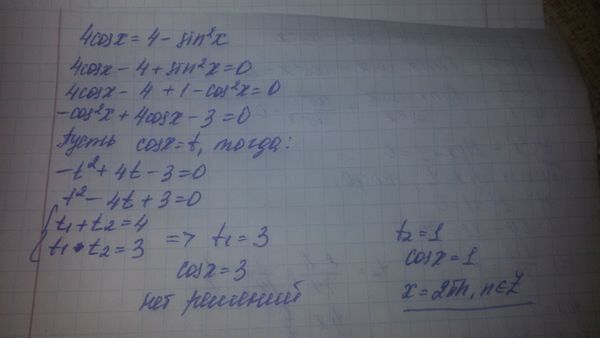 4cosx = 4 - sin²x
4cosx - 4 + sin²x = 0
4cosx - 4 + 1 - cos²x = 0
-cos²x + 4cosx - 3 = 0
Пусть cosx = t, тогда:
-t² + 4t - 3 = 0
t² - 4t + 3 = 0
{ t₁ + t₂ = 4
t₁ • t₂ = 3 => t₁ = 3
cosx = 3
нет решений
t₂ = 1
cosx = 1
x = 2πn, n ∈ Z